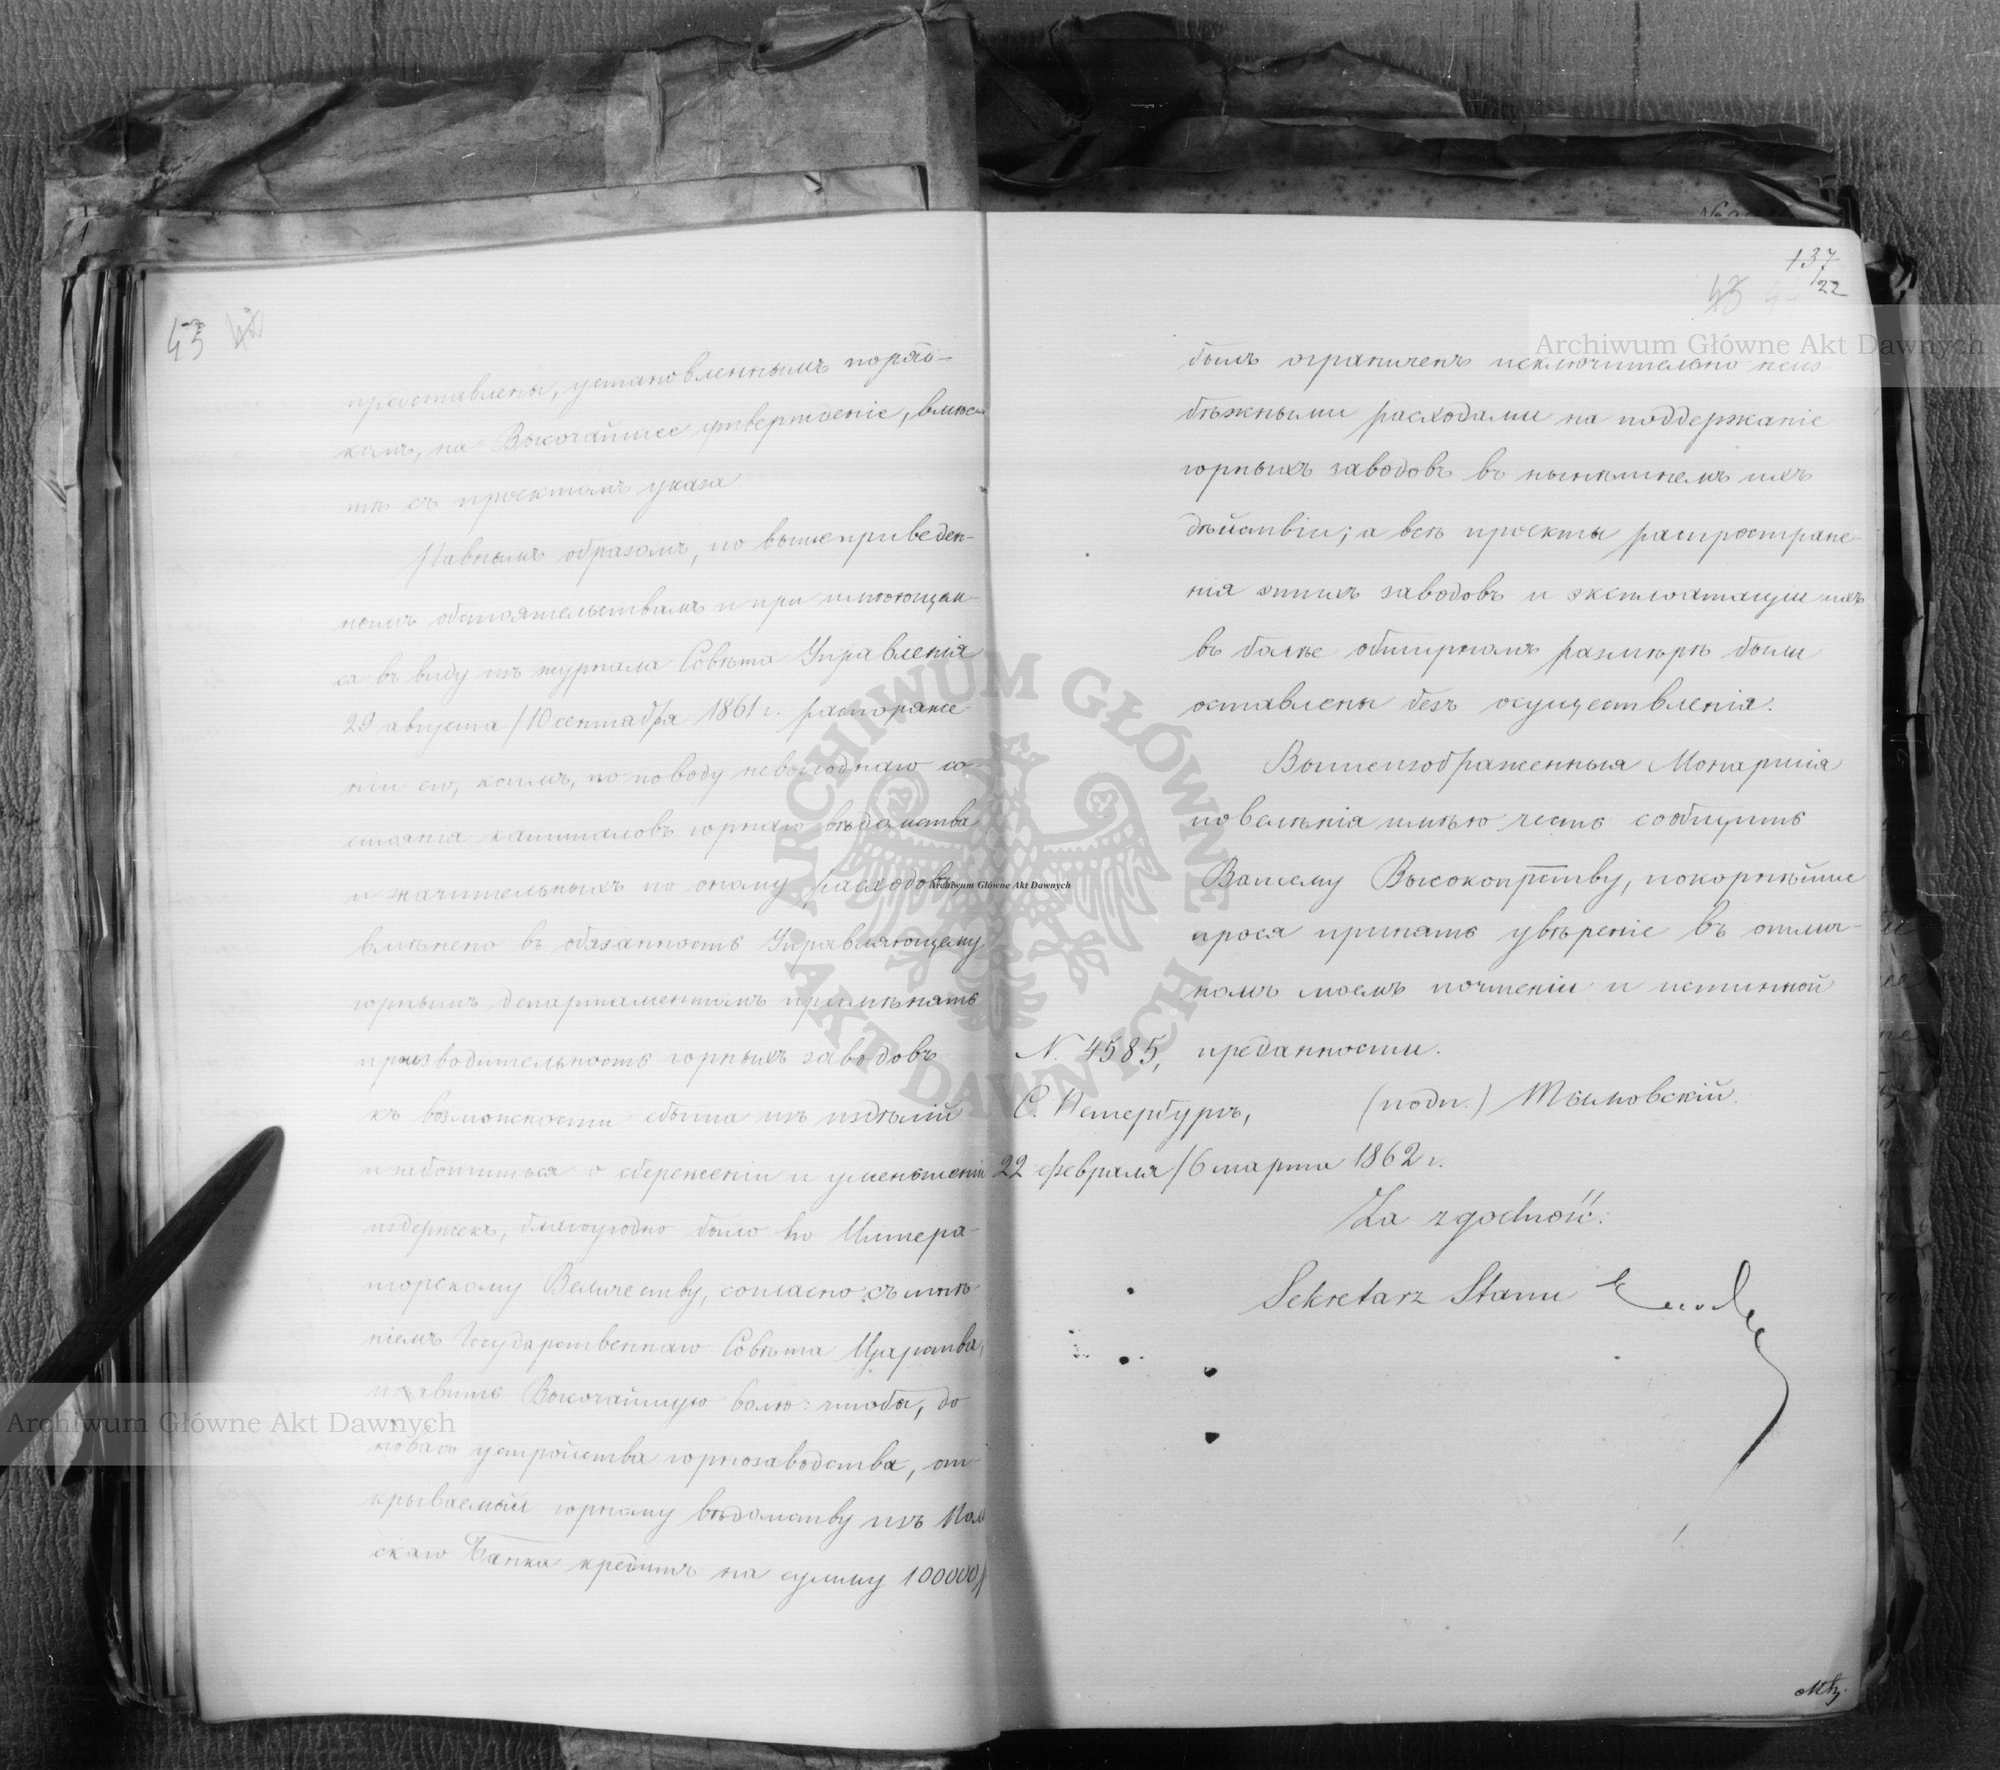 43
представлены, установленнымъ поряд-
комъ, на Высочайшее утвержденіе, вмѣс-
тѣ съ проектомъ указа.
Равнымъ образомъ, по вышеприведен-
нымъ обстоятельствамъ и при имѣющем-
ся въ виду изъ журнала Совѣта Управленія
29 августа / 10 сентября 1861 г. распоряже-
ніи его, коимъ, по поводу невыгоднаго со-
стоянія капиталовъ горнаго вѣдомства
и значительныхъ по оному расходовъ,
вмѣнено въ обязанность Управляющему
горнымъ департаментомъ примѣнять
производительность горныхъ заводовъ
къ возможности сбыта ихъ издѣлій
и заботиться о сбереженіи и уменьшеніи
издержекъ, благоугодно было Его Импера-
торскому Величеству, согласно съ мнѣ-
ніемъ Государственнаго Совѣта Царства,
изъявить Высочайшую волю: чтобы, до
новаго устройства горнозаводства, от-
крываемый горному вѣдомству изъ Поль
скаго Банка кредитъ на сумму 100000 р
137
22
43
былъ ограниченъ исключительно неиз
бѣжными расходами на поддержаніе
горныхъ заводовъ въ нынѣшнемъ ихъ
дѣйствіи; а всѣ проекты распростране-
нія этихъ заводовъ и эксплоатаціи ихъ
въ болѣе обширномъ размѣрѣ были
оставлены безъ осуществленія.
Вышеизображенныя Монаршія
повелѣнія имѣю честь сообщить
Вашему Высокопрству, покорнѣйше
прося принять увѣреніе въ отлич-
номъ моемъ почтеніи и истинной
N. 4585, преданности.
С. Петербургъ, (подп.) Тымовскій.
22 февраля / 6 марта 1862 г.
Za zgodność:
Sekretarz Stanu
Archiwum Główne Akt Dawnych
Archiwum Główne Akt Dawnych
Archiwum Główne Akt Dawnych
ARCHIWUM GŁÓWNE AKT DAWNYCH